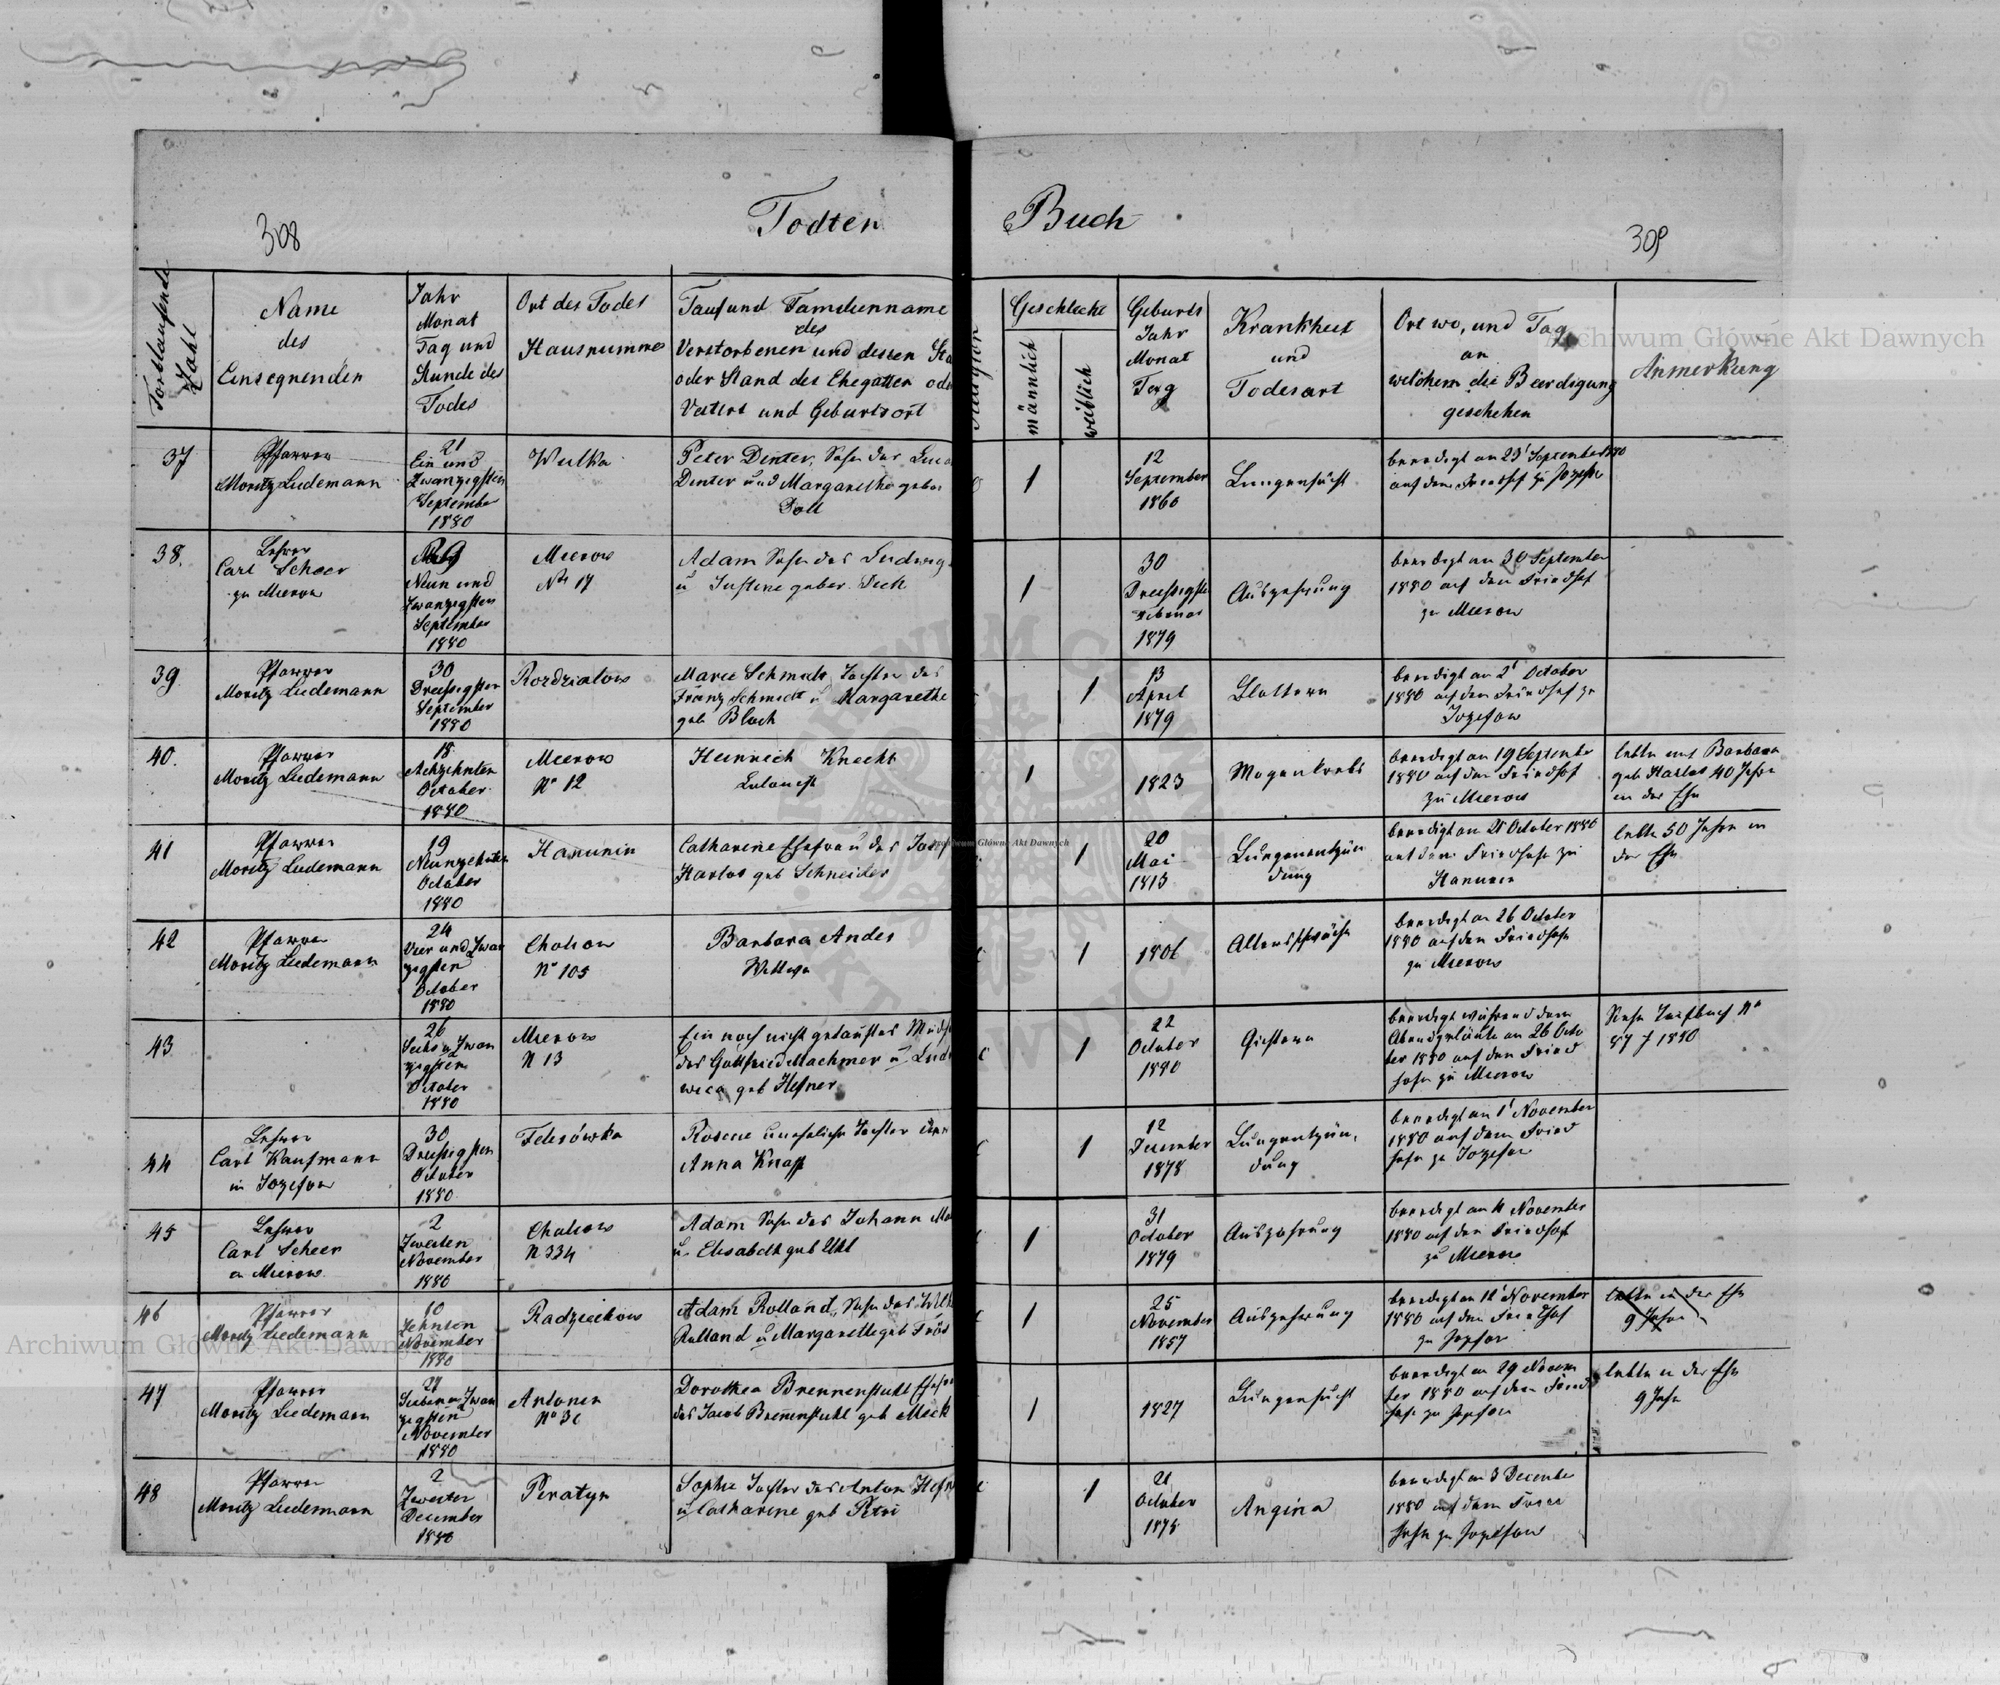 308
Todten Buch
309
Fortlaufende Zahl
Name
des
Einsegnenden
Jahr
Monat
Tag und
Stunde des
Todes
Ort des Todes
Hausnummer
Tauf und Familienname
des
Verstorbenen und dessen
oder Stand des Ehegatten
Vaters und Geburtsort
Geschlecht
männlich
weiblich
Geburts
Jahr
Monat
Tag
Krankheit
und
Todesart
Ort wo, und Tag
an
welchem die Beerdigung
geschehen
Anmerkung
37
Pfarrer
Moritz Ludemann
21
Ein und
Zwanzigsten
September
1880
Wulka
Peter Dinter, Sohn des
Dinter und Margarethe
1
12
September
1860
Lungensucht
beerdigt am 23 September
auf dem Friedhof zu
38.
Lehrer
Carl Scheer
zu Mierow
29
Neun und
Zwanzigsten
September
1880
Mierow
No 17
Adam Sohn des Ludwig
u Justine geber.
1
30
1879
Auszehrung
beerdigt am 30 September
1880 auf dem Friedhof
zu Mierow
39
Pfarrer
Moritz Ludemann
30
Dreisigsten
September
1880
Rozdzialow
Marie Schmidt, Tochter des
Franz Schmidt u Margarethe
geb Bloch
1
13
April
1879
Blattern
beerdigt am 2 October
1880 auf dem Friedhof zu
Jozefow
40.
Pfarrer
Moritz Ludemann
18
Achzehnten
October
1880
Mierow
No 12
Heinrich Knecht
1
1823
Magenkrebs
beerdigt am 19
1880 auf dem Friedhof
zu Mierow
lebte mit Barbara
geb Harlos 40 Jahre
in der Ehe
41
Pfarrer
Moritz Ludemann
19
Neunzehnten
October
1880
Hanunin
Catharine Ehefrau des
Harlos geb Schneider
1
20
Mai
1813
Lungenentzün
dung
beerdigt am 21 October 1880
auf dem Friedhofe zu
Hanunin
lebte 50 Jahre in
der Ehe
42
Pfarrer
Moritz Ludemann
24
Vier und Zwan
zigsten
October
1880
Cholcow
No 105
Barbara Andes
Wittwe
1
1806
Altersschwäche
beerdigt am 26 October
1880 auf dem Friedhofe
zu Mierow
43
26
Sechs u Zwan
zigsten
October
1880
Mierow
N 13
Ein noch nicht getauftes
des Gottfried Machmer u
geb Hefner
1
22
October
1880
beerdigt während dem
Abendgeläute am 26 Octo
ber 1880 auf dem Fried
hofe zu Mierow
Siehe Taufbuch No
87 f 1880
44
Lehrer
Carl Kaufmann
in Jozefow
30
Dreisigsten
October
1880
Felisówka
Rosine uneheliche Tochter der
Anna Knapp
1
12
December
1878
Lungentzün,
dung
beerdigt am 1 November
1880 auf dem Fried
hofe zu Jozefow
45
Lehrer
Carl Scheer
in Mierow
2
Zweiten
November
1880
Cholcow
N 334
Adam Sohn des Johann
u. Elisabeth geb Uhl
1
31
October
1879
Auszehrung
beerdigt am 4 November
1880 auf dem Friedhof
zu Mierow
46
Pfarrer
Moritz Ludemann
10
Zehnten
November
1880
Radziechow
Adam Rolland, Sohn des
Rolland u Margarethe geb
1
25
November
1857
Auszehrung
beerdigt am 12 November
1880 auf dem Friedhof
zu Jozefow
lebte in der Ehe
9 Jahre
47
Pfarrer
Moritz Ludemann
27
Sieben u Zwan
zigsten
November
1880
Antonin
No 31
Dorothea Brennenstuhl
des Jacob Brennenstuhl geb Mick
1
1827
Lungensucht
beerdigt am 29 Novem
ber 1880 auf dem Fried
hofe zu Jozefow
lebte in der Ehe
9 Jahre
48
Pfarrer
Moritz Ludemann
2
Zweiter
December
1880
Peratyn
Sophie Tochter des Anton
u Catharine geb Petri
1
21
October
1878
Angina
beerdigt am 3 December
1880 auf dem
hofe zu Jozefow
Archiwum Główne Akt Dawnych
Archiwum Główne Akt Dawnych
Archiwum Główne Akt Dawnych